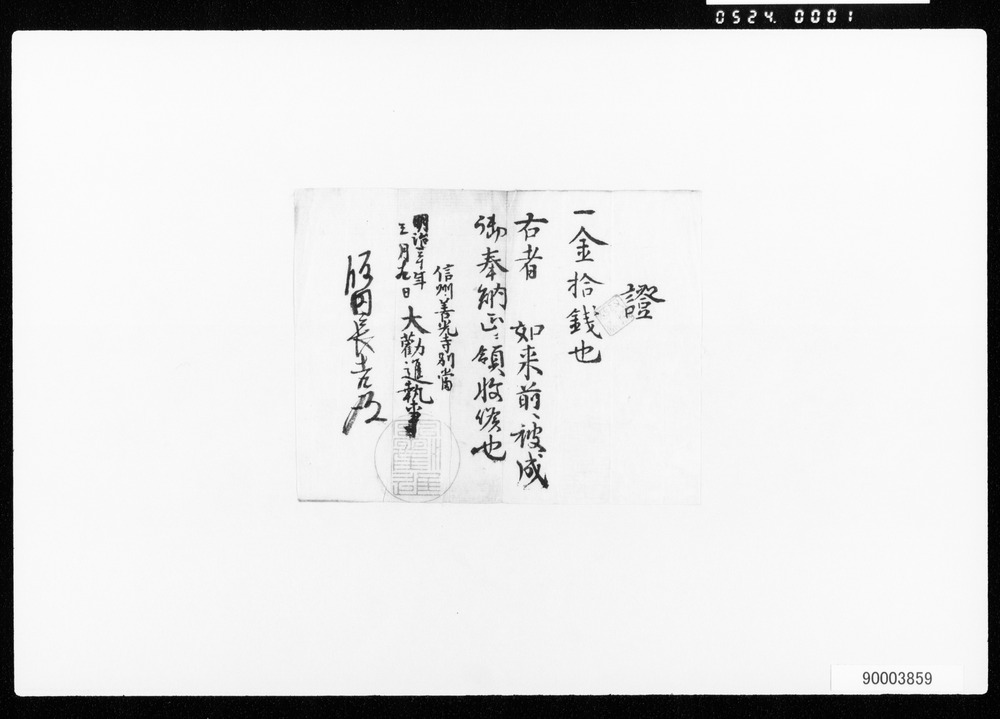 0524.0001
證
一金拾銭也
右者 如来前ヘ被成
御奉納正ニ領收候也
信州善光寺別當
明治三十年
三月九日
大勸進執事
飯田長吉殿
90003859